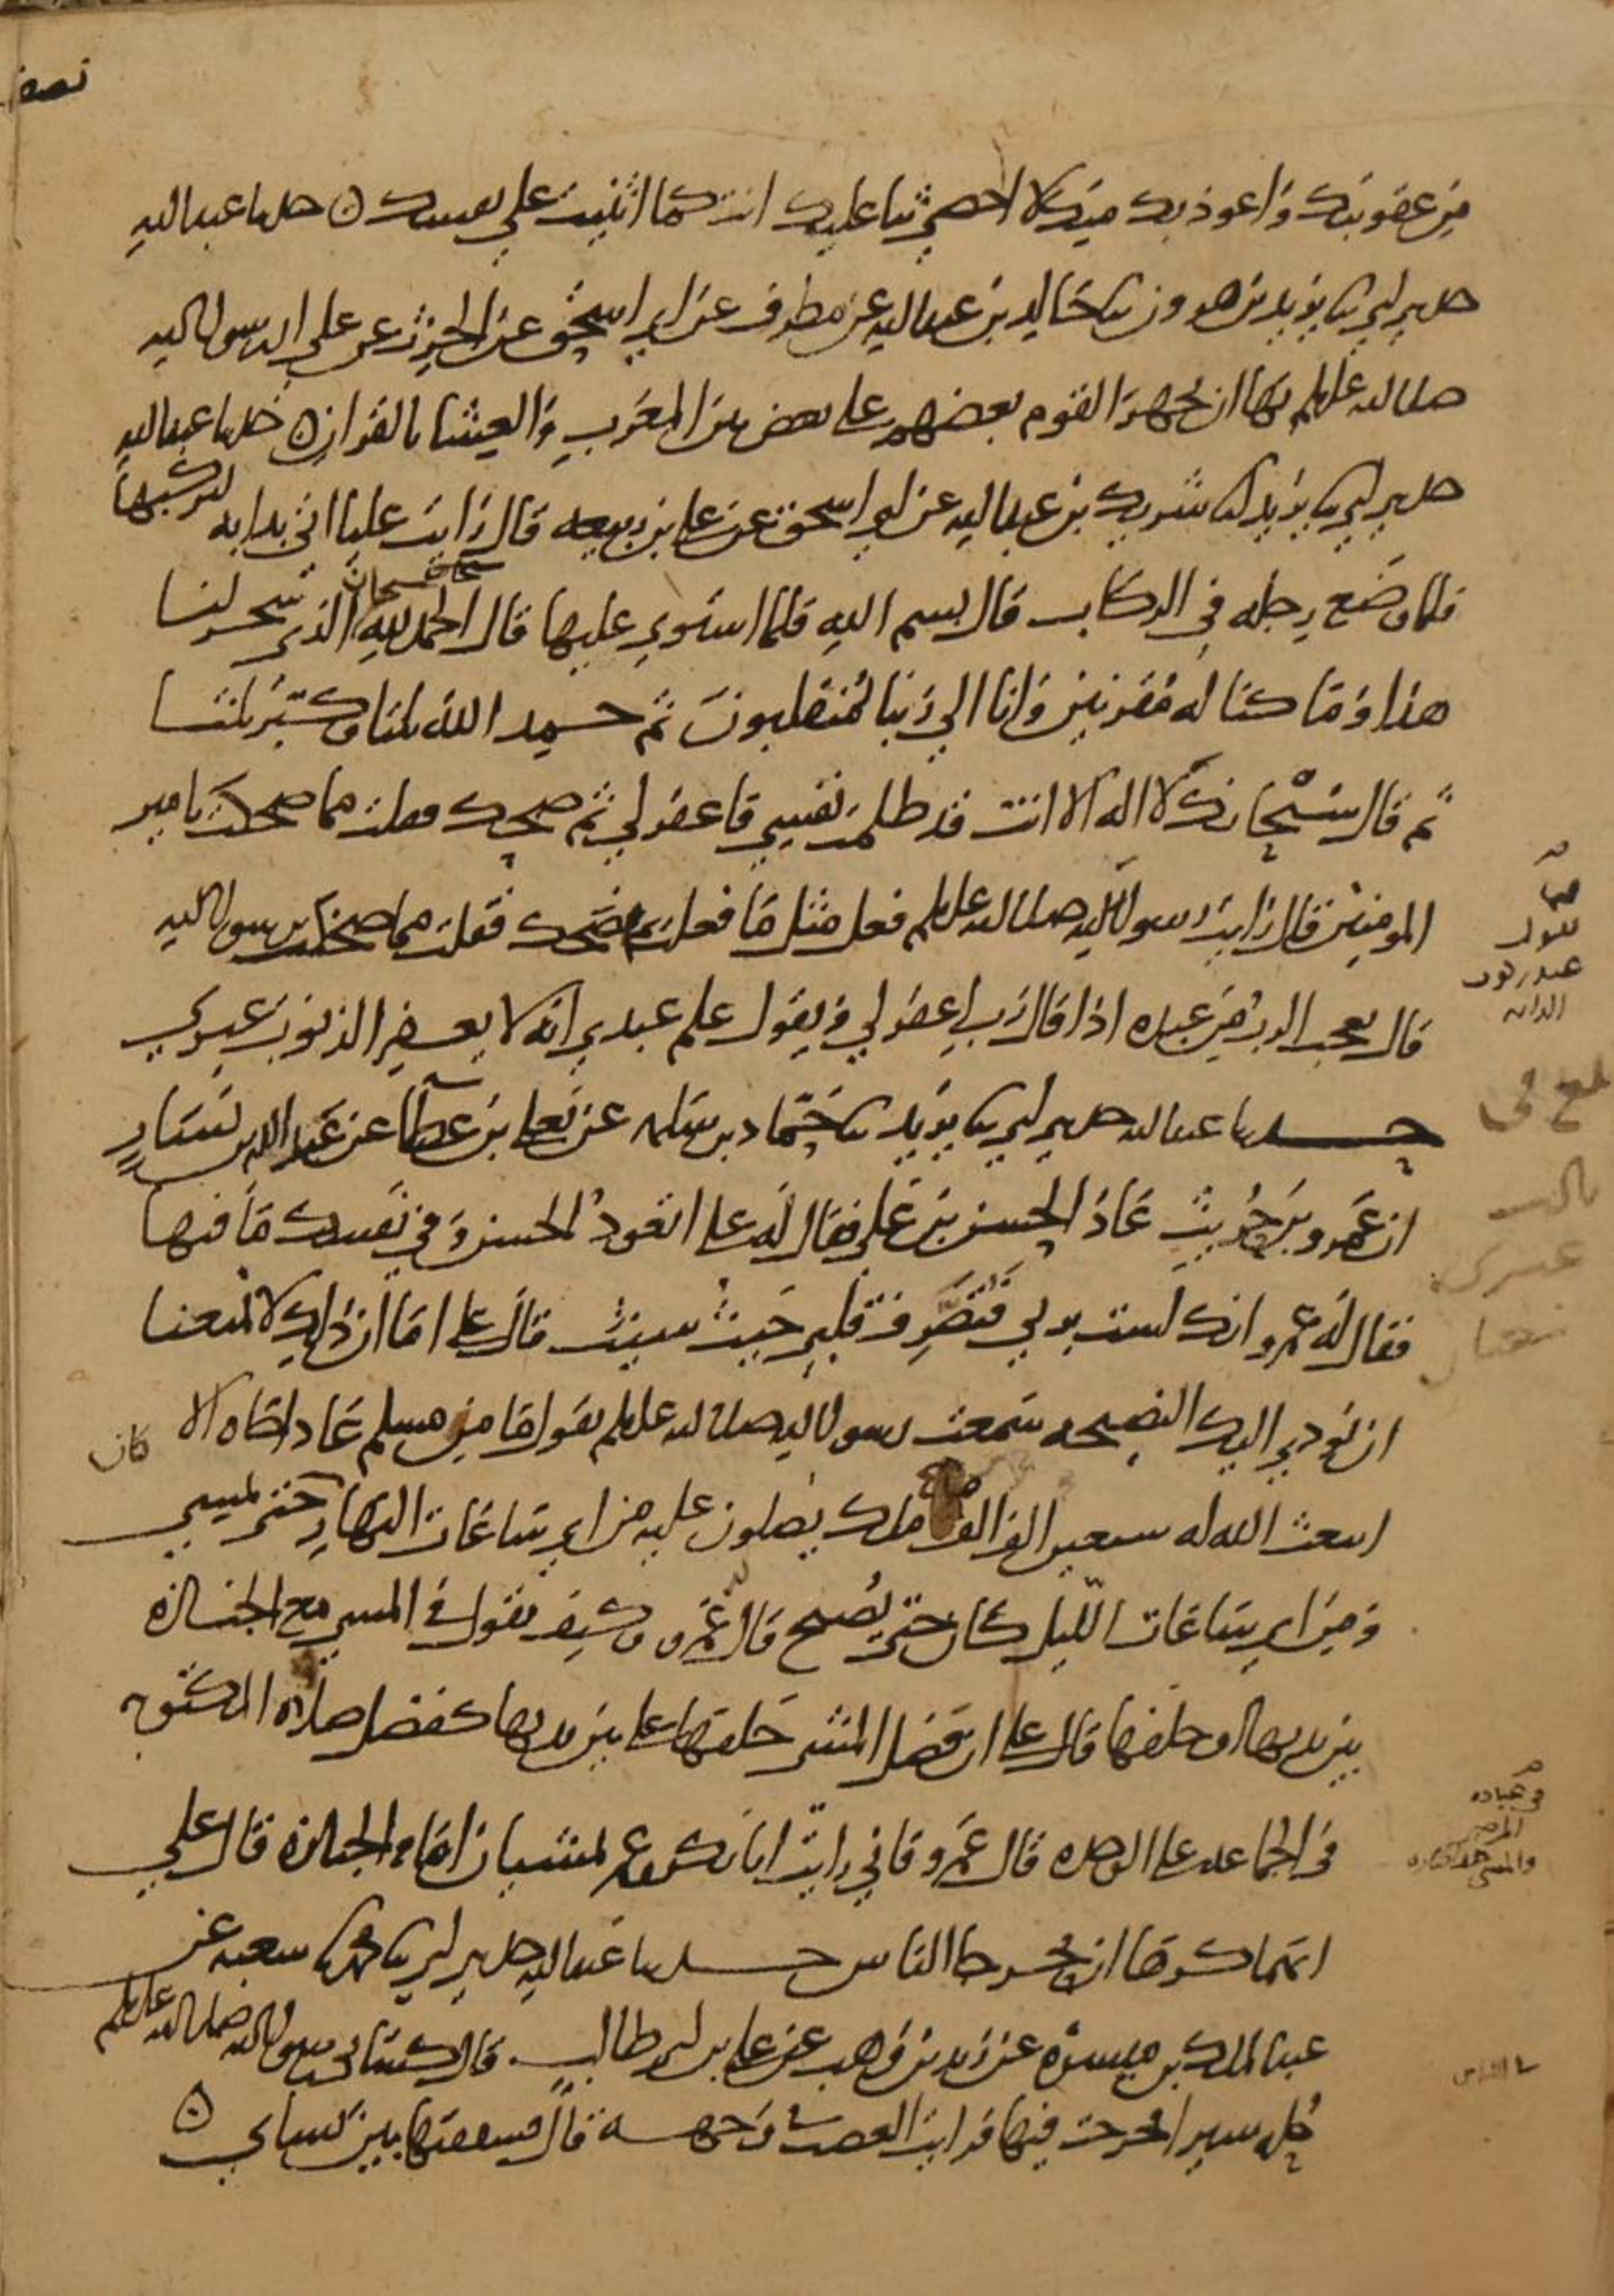 من عقوبتك واعوذ بك منك لا احصي ثنا عليك انت كما اثنيت على نفسك ه حدثنا عبد الله
حدثني ابي ثنا يزيد بن هرون ثنا خالد بن عبد الله عن مطرف عن ابي اسحق عن الحرث عن علي ان رسول الله
صلى الله عليه وسلم نهى ان يجهر القوم بعضهم على بعض بين المغرب والعشا بالقران ه حدثنا عبد الله
حدثني ابي ثنا يزيد انا شريك بن عبد الله عن ابي اسحق عن علي بن ربيعه قال رايت عليا اتي بدابه ليركبها
فلما وضع رجله في الركاب قال بسم الله فلما استوى عليها قال الحمد لله سبحان الذي سخر لنا
هذا وما كنا له مقرنين وانا الى ربنا لمنقلبون ثم حمد الله ثلثا وكبر ثلثا
ثم قال سبحانك لا اله الا انت قد ظلمت نفسي فاغفر لي ثم ضحك فقلت مما ضحكت يامير
المومنين قال رايت رسول الله صلى الله عليه وسلم فعل مثل ما فعلت ثم ضحك فقلت مما ضحكت يرسول الله
قال يعجب الرب من عبده اذا قال رب اغفر لي ويقول علم عبدي انه لا يغفر الذنوب غيري
حدثنا عبد الله حدثني ابي ثنا يزيد ثنا حماد بن سلمه عن يعلى بن عطا عن عبد الله بن يسار
ان عمرو بن حريث عاد الحسن بن علي فقال له علي اتعود الحسن وفي نفسك ما فيها
فقال له عمرو انك لست بربي فتصرف قلبي حيث شيت قال علي اما ان ذلك لا يمنعنا
ان نودي اليك النصيحه سمعت رسول الله صلى الله عليه وسلم يقول ما من مسلم عاد اخاه الا
ابتعث الله له سبعين الف ملك يصلون عليه من اي ساعات النهار كان حتى يمسي
ومن اي ساعات الليل كان حتى يصبح قال له عمرو وكيف تقول في المشي مع الجنازه
بين يديها او خلفها قال علي ان فضل المشي خلفها على بين يديها كفضل صلاه المكتوبه
في الجماعه على الوحده قال عمرو فاني رايت ابا بكر وعمر يمشيان امام الجنازه قال علي
انما كرها ان يحرجا الناس حدثنا عبد الله حدثني ابي ثنا محمد ثنا شعبه عن
عبد الملك بن ميسره عن زيد بن وهب عن علي بن ابي طالب قال كساني رسول الله صلى الله عليه وسلم
حله سيرا فخرجت فيها فرايت الغضب في وجهه قال فشققتها بين نسائي ه
في عيادة
المرضى
والمشي